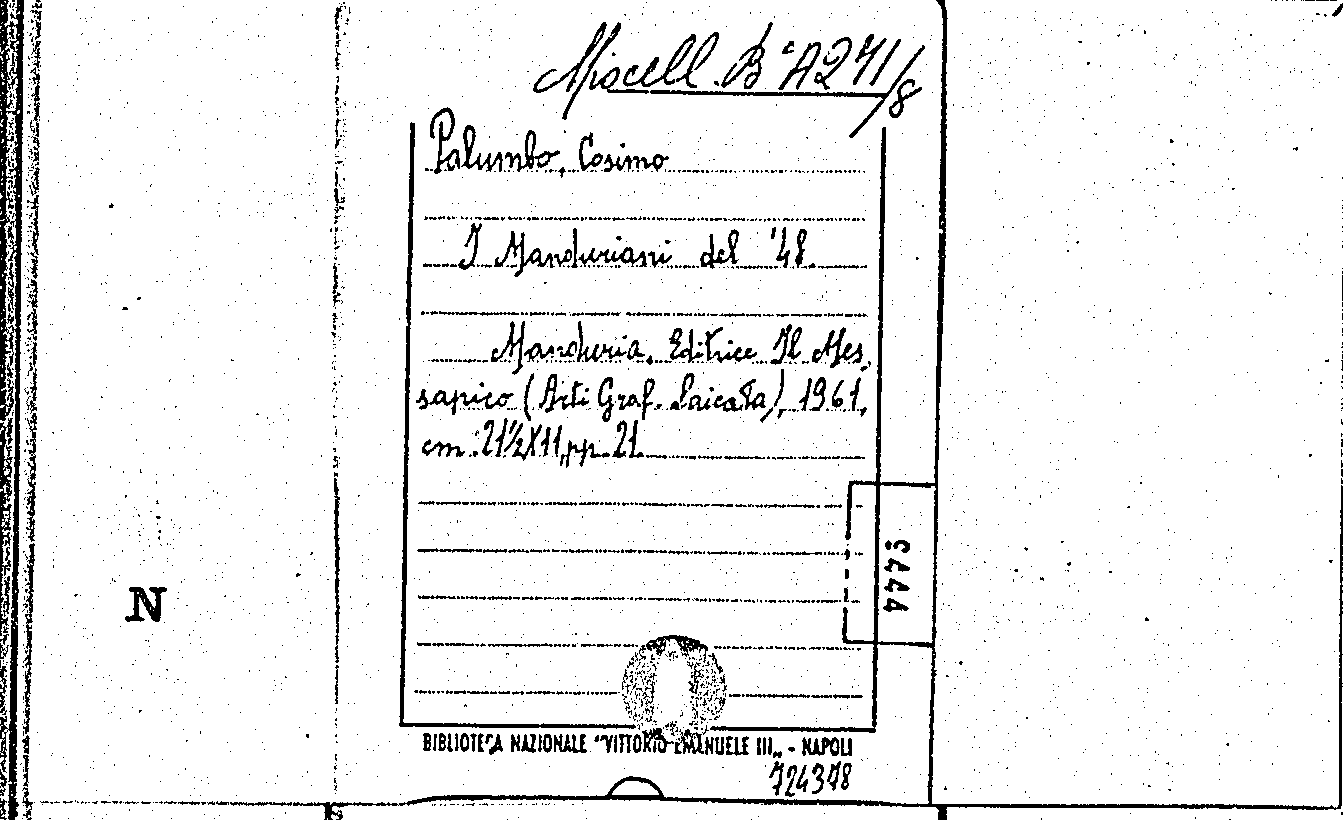 Miscell. Bª A271/8
Palumbo, Cosimo
I Manduriani del '48.
Manduria, Editrice Il Mes,
sapico (Arti Graf. Laicata), 1961,
cm. 21½X11, pp. 21.
9444
N
BIBLIOTECA NAZIONALE "VITTORIO EMANUELE III„ - NAPOLI
724378